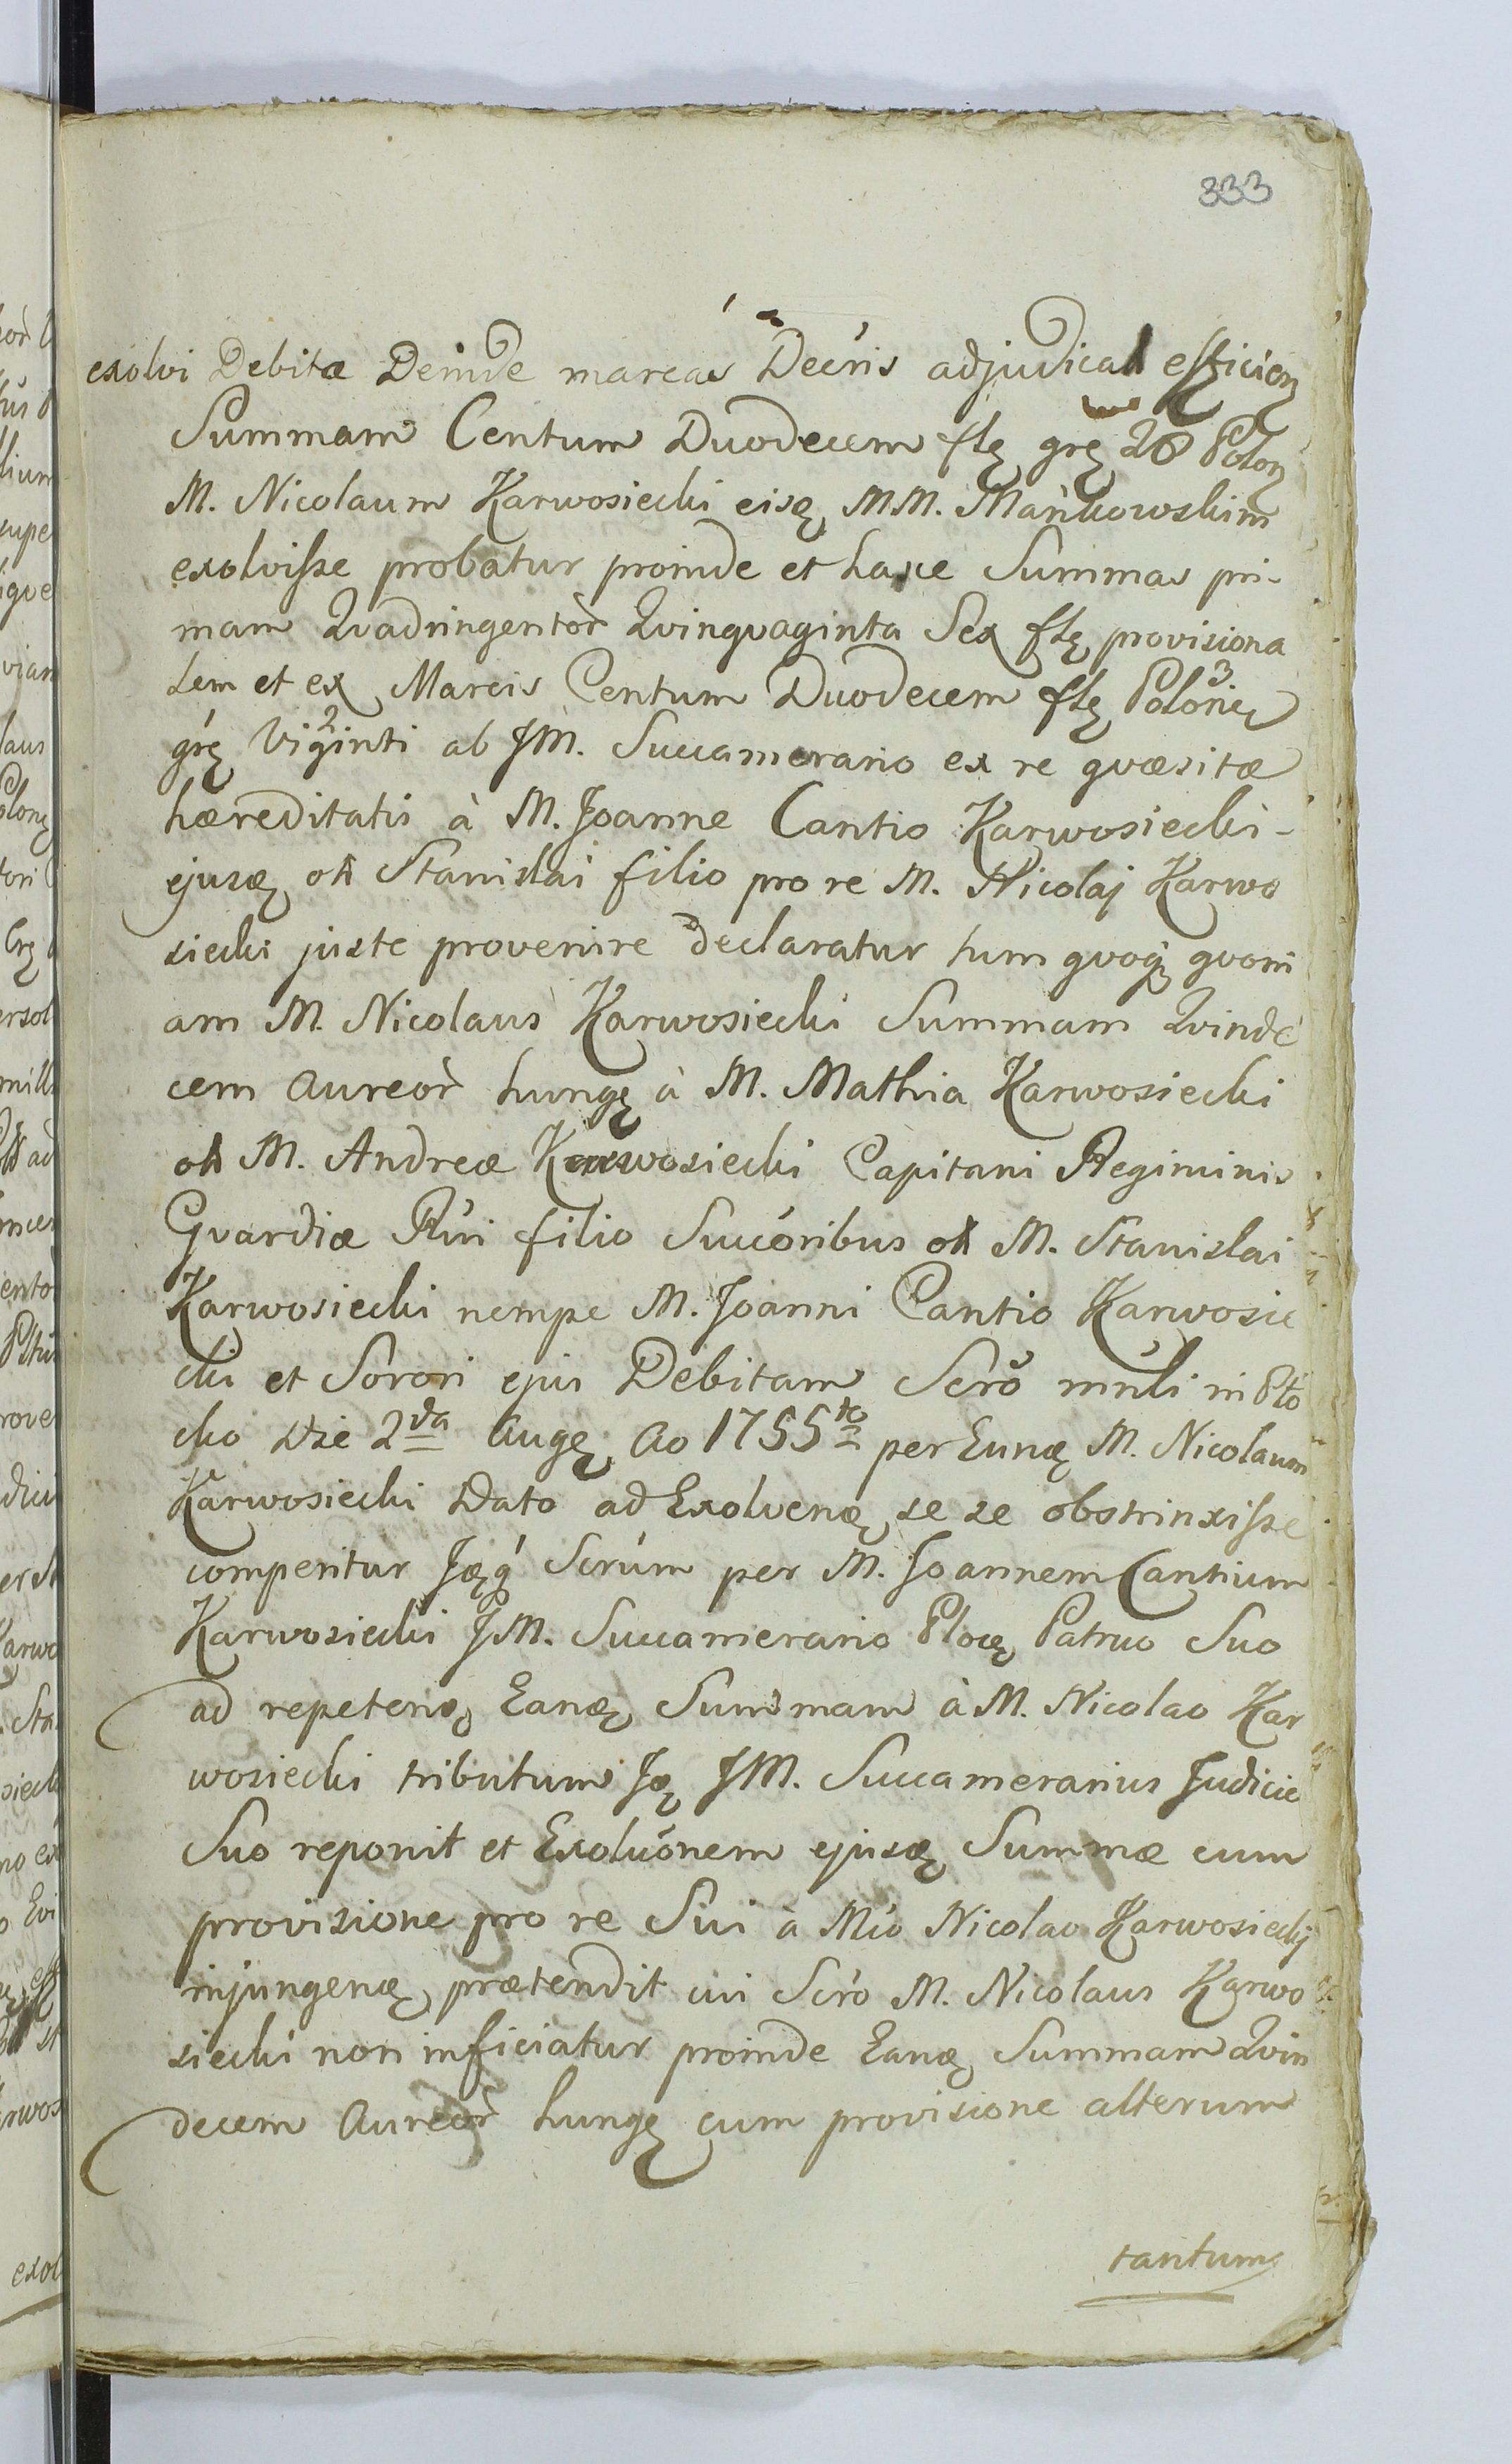 333
exolvi Debitæ Deinde marcas Decris adjudicat efficien
Summam Centum Duodecem flę grę 20 Polon
M. Nicolaum Karwosiecki eisę MM. Mańkowskim
exolvisse probatur proinde et hasce Summas pri-
mam Qvadringentor Qvinqvaginta Sex flę provisiona
lem et ex Marcis Centum Duodecem flę Polonie
grę Viginti ab JM. Succamerario ex re qvæsitæ
hæreditatis à M. Joanne Cantio Karwosiecki-
ejusę ott Stanislai filio pro re M. Nicolaj Karwo
siecki juste provenire declaratur tum qvoq qvoni
am M. Nicolaus Karwosiecki Summam Qvinde
cem Aureor hungę à M. Mathia Karwosiecki
ott M. Andreæ Karwosiecki Capitani Regiminis
Gvardiæ Rúi filio Succóribus ott M. Stanislai
Karwosiecki nempe M. Joanni Cantio Karwosie
cki et Sorori ejus Debitam Scró mnli in Pło
cko Die 2da Augę Ao 1755to per Eunę M. Nicolaum
Karwosiecki Dato ad Exolvenę se se obstrinxisse
comperitur Jęq́ Scrúm per M. Joannem Cantium
Karwosiecki JM. Succamerario Plocę Patruo Suo
ad repetenę Eanę Summam à M. Nicolao Kar
wosiecki tributum Ję JM. Succamerarius Judicie
Suo reponit et Exolúonem ejusę Summæ cum
provisione pro re Sui à Mío Nicolao Karwosiecki
injungenę prætendit cui Scró M. Nicolaus Karwo
siecki non inficiatur proinde Eanę Summam Qvin
decem Aureor hungę cum provisione alterum
tantum